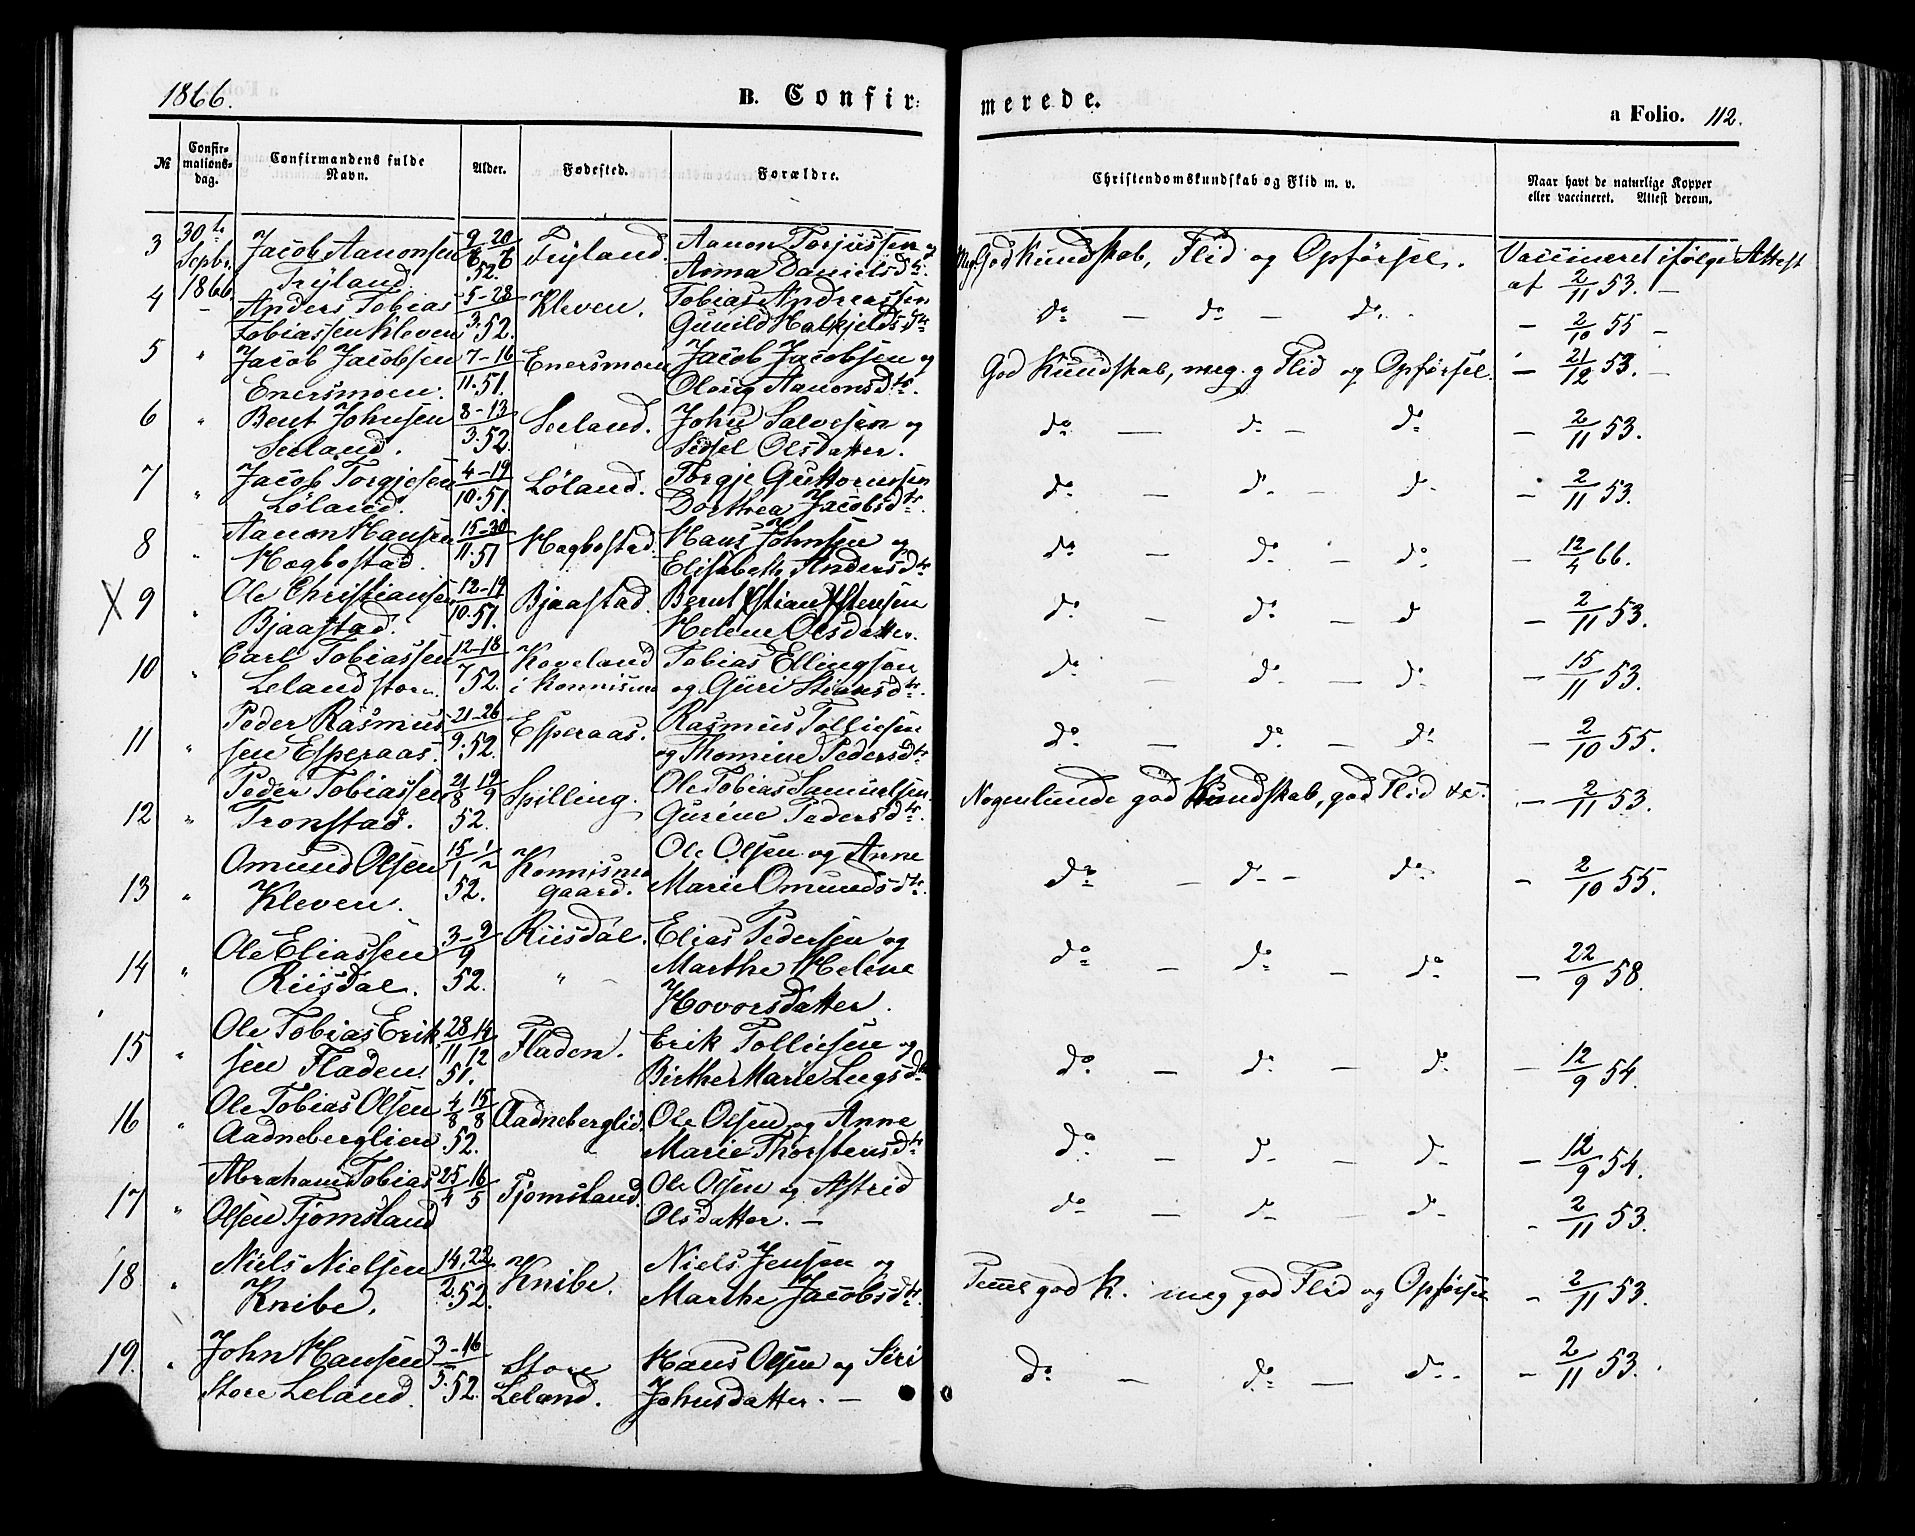 1866.
B. Confir:
merede.
a Folio. 112.
№
Confir-
mations-
dag.
Confirmandens fulde
Navn.
Alder.
Fødested.
Forældre.
Christendomskundskab og Flid m. v.
Naar havt de naturlige Kopper
eller vaccineret. Attest derom.
3 30te Sepbr. 1866. Jacob Aanonsen 9-20/6 6 Tryland. Aanon Torjussen og Meg. God Kundskab, Flid og Opførsel. Vaccineret ifølge Attest
Tryland 52. Anna Danielsdtr. af 2/11 53. –
4 – Anders Tobias 5-28 Kleven. Tobias Andreassen do – do – do.
Tobiassen Kleven 3. 52. Gunild Halkjeldsdtr – 2/10 55 –
5 " Jacob Jacobsen 7-16 Enersmoen Jacob Jacobsen og God Kundskab, meg. g Flid og Opførsel. – 21/12 53. –
Enersmoen. 11. 51. Olevig Aanonsdtr
6 " Bent Johnsen 8-13 Seeland. John Salvesen og do – do – do – 2/11 53.
Seeland. 3. 52. Sidsel Olsdatter.
7 " Jacob Torgjesen 4-19 Løland. Torgje Guttormsen do – do – do – 2/11 53.
Løland. 10. 51. Dorthea Jacobsdtr.
8 " Aanon Hansen 15-30 Høgbostad. Hans Johnsen og do – do – do – 12/4 66.
Høgbostad. 11. 51 Elisabeth Andersdtr
X 9 " Ole Christiansen 12-19 Bjaastad. Bernt do – do – do – 2/11 53.
Bjaastad. 10. 51. Helene Olsdatter.
10 " Carl Tobiassen 12-18 Koveland Tobias Ellingsen do – do – do – 15/11 53.
Leland store 7 52. i og Guri Stiansdtr.
11 " Peder Rasmus 21-26 Esperaas. Rasmus Tolliesen do – do – do – 2/10 55.
sen Esperaas. 9. 52. og Thomine Pedersdtr
12 " Peder Tobiassen 21/8 19/9 Spilling. Ole Tobias Samuelsen Nogenlunde god Kundskab, god Flid &c. – 2/11 53.
Tronstad. 52. Gurine Pedersdtr.
13 " Omund Olsen 15/1 1/2 Konnisne Ole Olsen og Anne do – do – do – 2/10 55.
Kleven. 52. gaard. Marie Omundsdtr.
14 " Ole Eliassen 3-9 Riisdal. Elias Pedersen og do – do – do – 22/9 58.
Riisdal. 9 52. " – Marthe Helene
Hovorsdatter.
15 " Ole Tobias Erik 28/11 14/12 Fladen. Erik Tolliesen og do – do – do – 12/9 54.
sen Fladen. 51. Birthe Marie Lugsdtr
16 " Ole Tobias Olsen 4/8 15/8 Aadneberglid. Ole Olsen og Anne do – do – do – 12/9 54.
Aadneberglien 52. Marie Thorstensdtr
17 " Abraham Tobias 25/4 16/5 Tjomsland. Ole Olsen og Astrid do – do – do – 2/11 53.
Olsen Tjomsland Olsdatter. –
18 " Niels Nielsen 14, 22 Knibe. Niels Jensen og Teml. god K. meg god Flid og Opførsel – 2/11 53.
Knibe. 2. 52. Marthe Jacobsdtr.
19. " John Hansen 3-16 Store Hans Olsen og Siri do – do – do – 2/11 53.
Store Leland. 5. 52. Leland. Johnsdatter. –